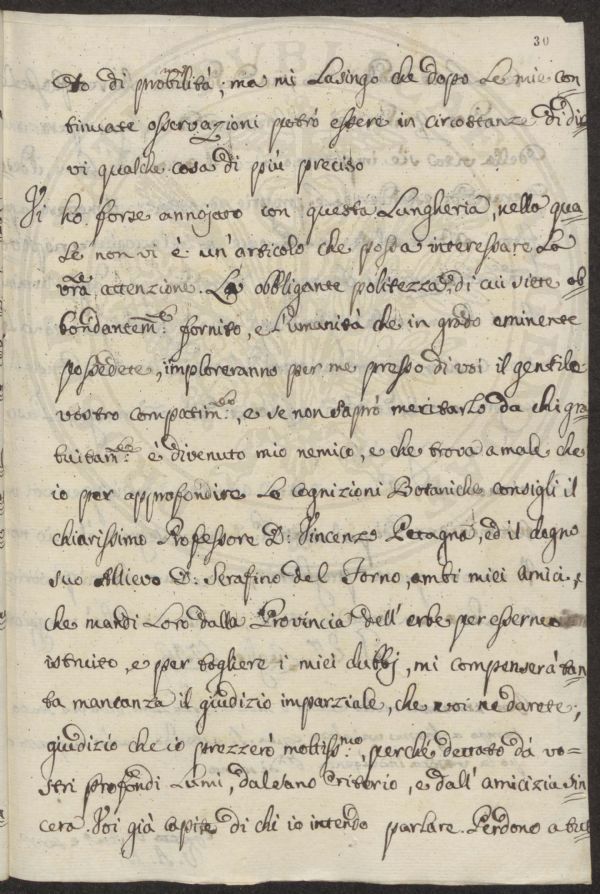 30
to di probilità; ma mi Lusingo che dopo Le mie con
tinuate osservazioni potrò essere in circostanze di dir
vi qualche cosa di più preciso
Vi ho forse annojato con questa Lungheria, nella qua
Le non vi è un' articolo che possa interessare La
vrã attenzione. La obbligante politezza, di cui siete ab
bondantem:te fornito, e L'umanità che in grado eminente
possedete, imploreranno per me presso di voi il gentile
vostro compatim:to, e se non saprò meritarlo da chi gra
tuitam:te è divenuto mio nemico, e che trova a male che
io per approfondire Le cognizioni Botaniche consigli il
chiarissimo Professore D: Vincenzo Petagna, ed il degno
suo Allievo D: Serafino del Torno, ambi miei amici,
che mandi Loro dalla Provincia dell' erbe per esserne
istruito, e per togliere i miei dubbj, mi compenserà tan
ta mancanza il giudizio imparziale, che voi ne darete;
giudizio che io prezzerò moltiss:mo, perché dettato da vo=
stri profondi Lumi, dal sano Criterio, e dall' amicizia sin
cera. Voi già capite di chi io intendo parlare. Perdono a